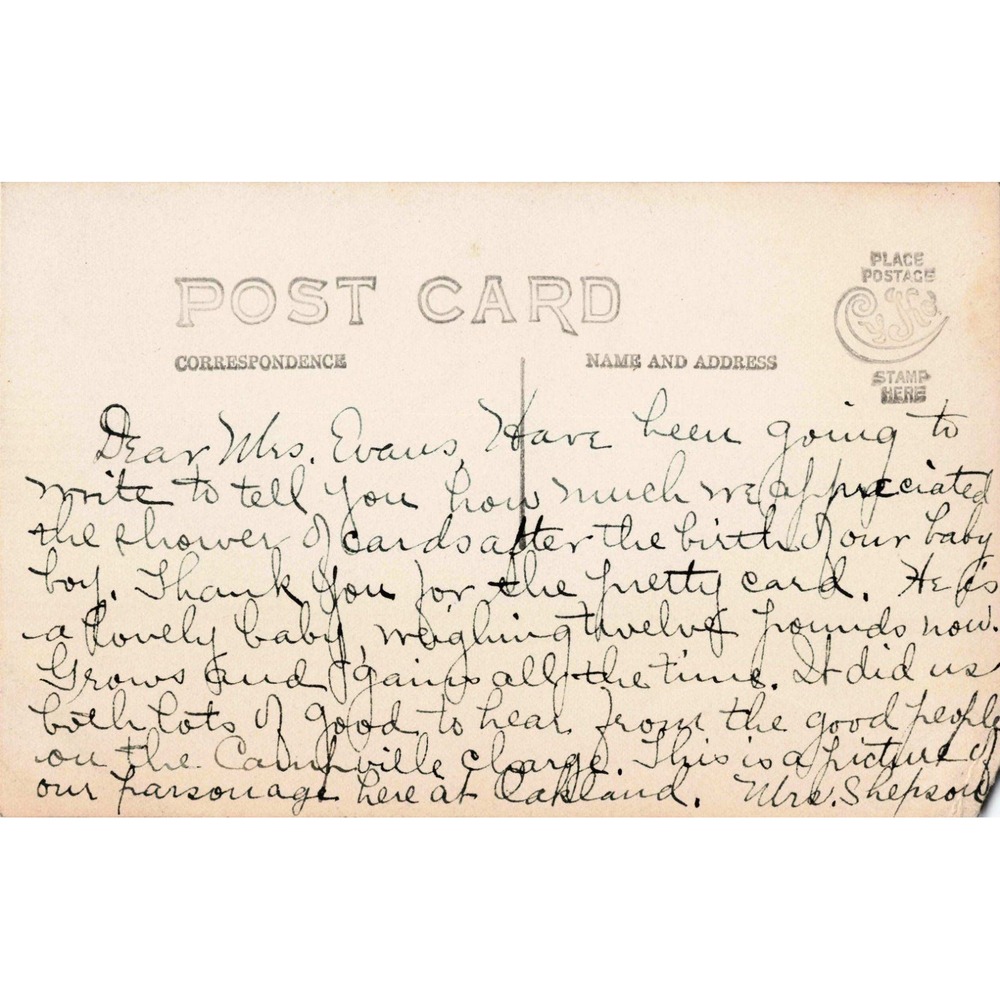 POST CARD
CORRESPONDENCE
NAME AND ADDRESS
PLACE
POSTAGE
CYKO
STAMP
HERE
Dear Mrs. Evans, Have been going to
write to tell you how much we appreciated
the shower of cards after the birth of our baby
boy. Thank you for the pretty card. He is
a lovely baby, weighing twelve pounds now.
Grows and gains all the time. It did us
both lots of good to hear from the good people
on the charge. This is a picture of
our parsonage here at Oakland. Mrs. Shepson